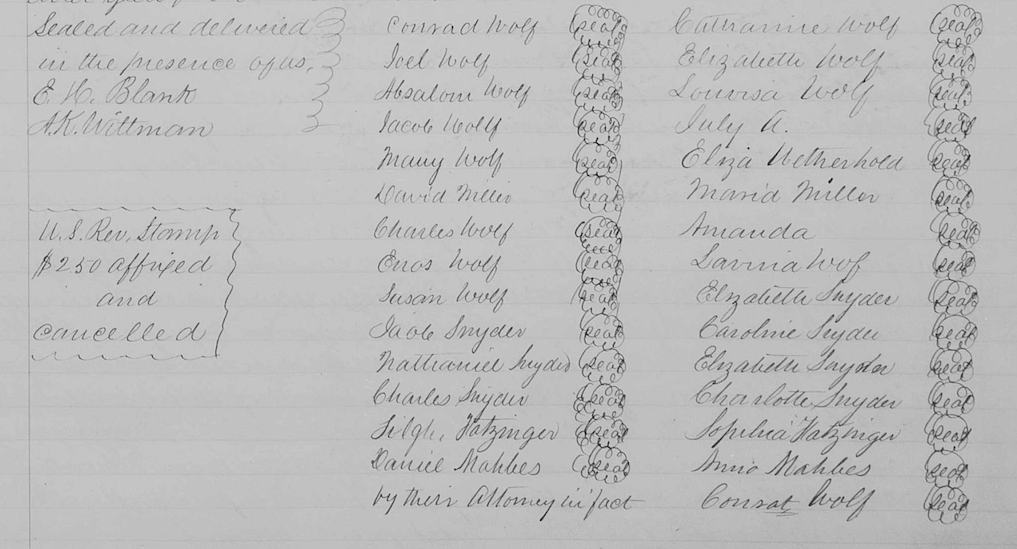 Sealed and delivered Conrad Wolf seal Catharine Wolf seal
in the presence of us. Joel Wolf seal Elizabeth Wolf seal
E. H. Blank Absalom Wolf seal Louvisa Wolf seal
A. K. Wittman Jacob Wolf seal July A. seal
Mary Wolf seal Eliza Wetherhold seal
David Miller seal Maria Miller seal
U. S. Rev. Stamp Charles Wolf seal Amanda seal
$250 affixed Enos Wolf seal Lavina Wof seal
and Susan Wolf seal Elizabeth Snyder seal
cancelled Jacob Snyder seal Caroline Snyder seal
Nathaniel Snyder seal Elizabeth Snyder seal
Charles Snyder seal Charlotte Snyder seal
Hatzinger seal Sophia Hatzinger seal
Daniel Mahbes seal Anna Mahbes seal
by their Attorney in fact Conrat Wolf seal